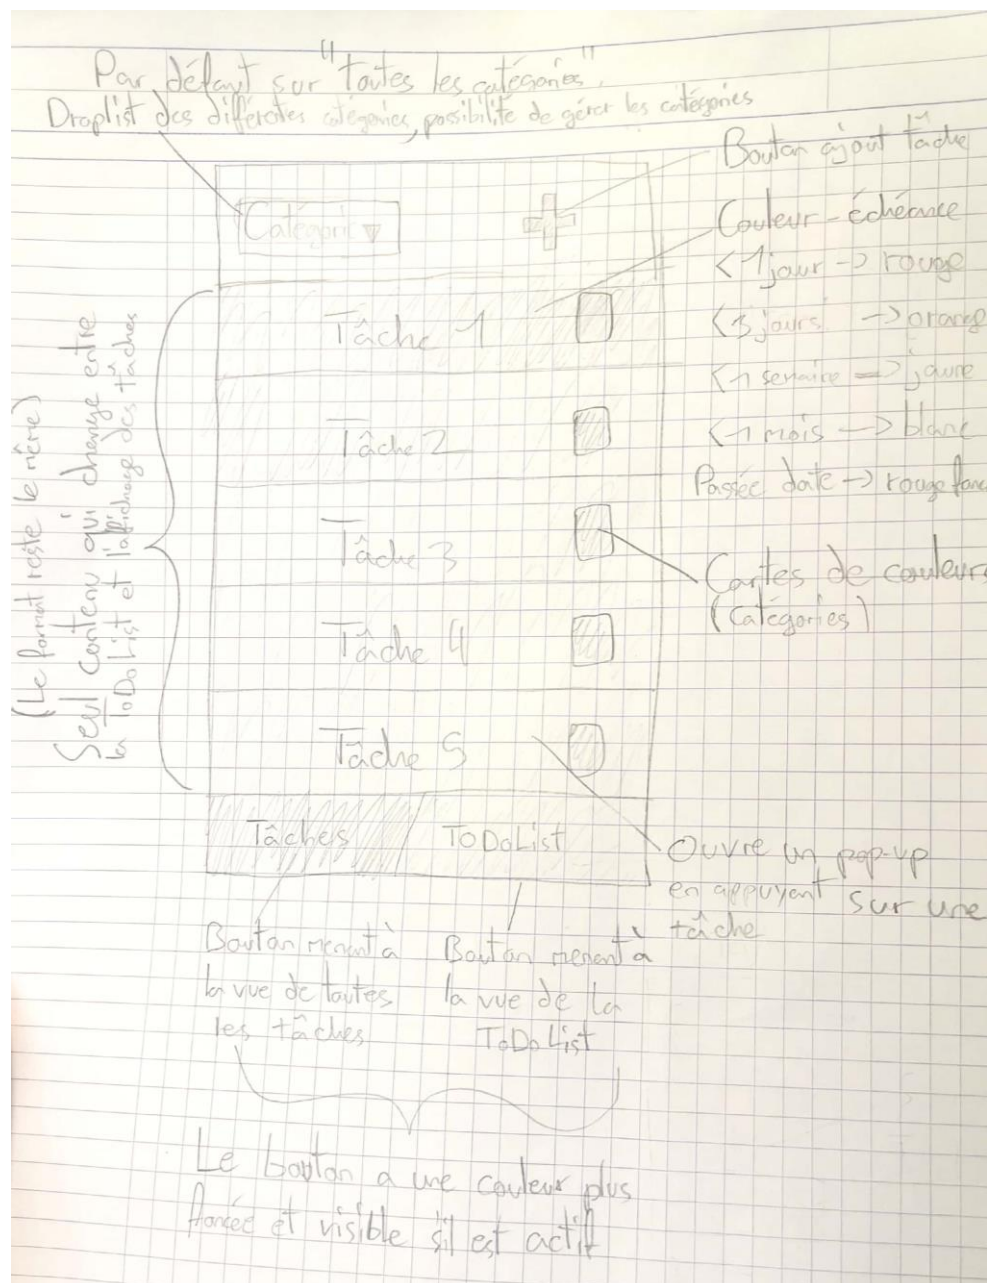 Par défaut sur "toutes les catégories"
Droplist des différentes catégories, possibilité de gérer les catégories
Bouton ajout tâche
Catégorie ▼
Couleur - échéance
< 1 jour -> rouge
< 3 jours -> orange
< 1 semaine => jaune
< 1 mois -> blanc
Passée date -> rouge fonc
Tâche 1
Tâche 2
Tâche 3
Tâche 4
Tâche 5
Cartes de couleurs
(Catégories)
(Le format reste le même)
Seul contenu qui change entre
la ToDoList et l'affichage des tâches
Tâches
ToDoList
Ouvre un pop-up
en appuyant sur une
tâche
Bouton menant à
la vue de toutes
les tâches
Bouton menant à
la vue de la
ToDoList
Le bouton a une couleur plus
foncée et visible s'il est actif